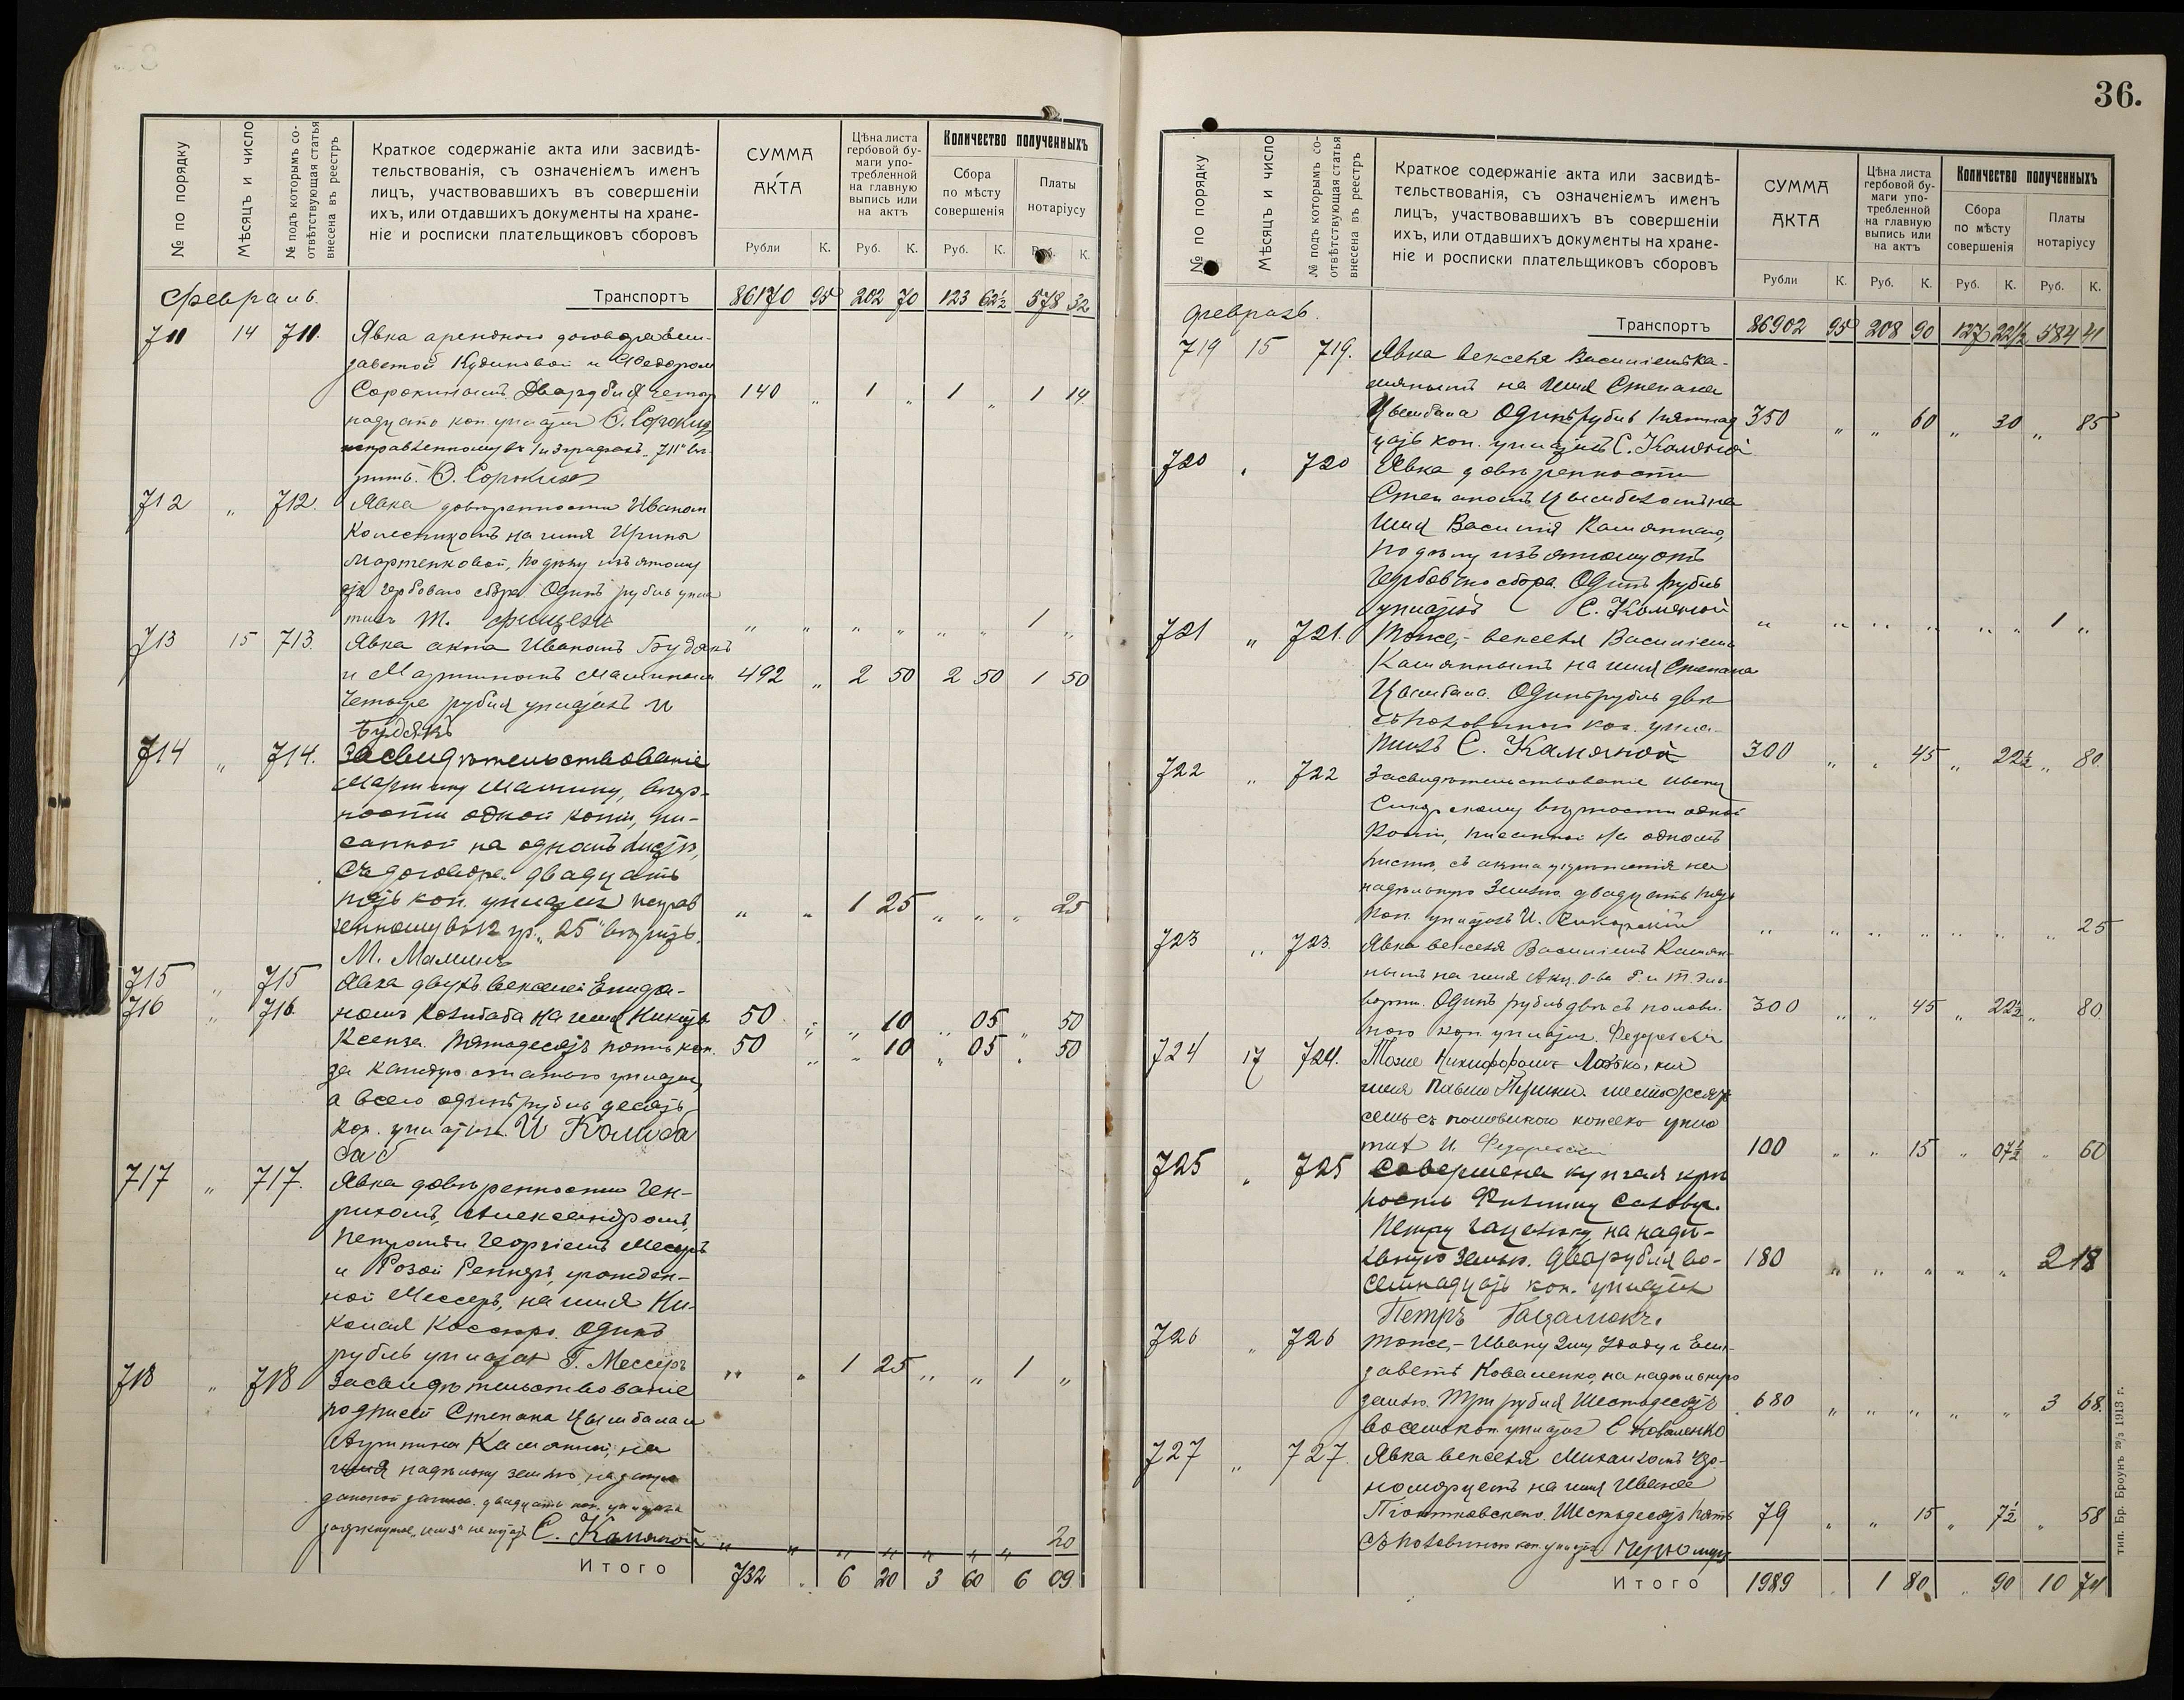 36.
№ по порядку
Мѣсяцъ и число
№ подъ которымъ соотвѣтствующая статья внесена въ реестръ
Краткое содержаніе акта или засвидѣ-
тельствованія, съ означеніемъ именъ
лицъ, участвовавшихъ въ совершеніи
ихъ, или отдавшихъ документы на хране-
ніе и росписки плательщиковъ сборовъ
СУММА АКТА
Рубли К.
Цѣна листа гербовой бу-
маги упо-
требленной
на главную
выпись или
на актъ
Руб. К.
Количество полученныхъ
Сбора по мѣсту совершенія
Руб. К.
Платы нотаріусу
Руб. К.
Февраль.
Транспортъ 86170 95 202 70 123 62½ 578 32
711 14 711. Явка аренднаго договора Ели-
заветой Кудиновой и Федоромъ
Сорокинымъ. Два рубля четыр 140 „ 1 „ 1 „ 1 14
надцать коп. уплатил Ѳ. Сорокин
исправленному въ 1 и 3 графахъ „711" вѣ-
рить. Ѳ. Сорокин
712 „ 712. Явка довѣренности Иваномъ
Колесникомъ на имя Ирины
Мартенковой, по дѣлу изъятому
отъ гербоваго сбора Одинъ рубль упла
тилъ „ „ „ „ „ „ 1 „
713 15 713. Явка акта Иваномъ Будякъ
и Мартыномъ Малинымъ 492 „ 2 50 2 50 1 50
Четыре рубля уплатилъ И
Будякъ
714 „ 714. Засвидѣтельствованіе
Мартыну Малину, вѣр-
ности одной копіи, пи-
санной на одномъ листѣ,
съ договора. двадцать
пять коп. уплатил исправ „ „ 1 25 „ „ „ 25
ленному въ 12 гр. „25" вѣрить.
М. Малинъ
715 „ 715 Явка двухъ векселей
716 „ 716. на имя Никиты 50 „ „ 10 „ 05 „ 50
Ксенза. Пятьдесятъ пять коп. 50 „ „ 10 „ 05 „ 50
за каждую статью уплатил,
а всего одинъ рубль десять
коп. уплатилъ И
717 „ 717. Явка довѣренности Ген-
рихомъ, Александромъ,
Петромъ и Георгіемъ Мессеръ
и Розой Реннеръ, урожден-
ной Мессеръ, на имя Ни-
колая Косс. Одинъ
рубль уплатил Г. Мессеръ „ „ 1 25 „ „ 1 „
718 „ 718 Засвидѣтельствованіе
подписей Степана Цымбала и
Камянной, на
надѣльну землю, на
двадцать коп. уплатила
зачеркнутое „имя" не читать С. Камяной „ „ „ „ „ „ „ 20
Итого 732 „ 6 20 3 60 6 09
№ по порядку
Мѣсяцъ и число
№ подъ которымъ соотвѣтствующая статья внесена въ реестръ
Краткое содержаніе акта или засвидѣ-
тельствованія, съ означеніемъ именъ
лицъ, участвовавшихъ въ совершеніи
ихъ, или отдавшихъ документы на хране-
ніе и росписки плательщиковъ сборовъ
СУММА АКТА
Рубли К.
Цѣна листа гербовой бу-
маги упо-
требленной
на главную
выпись или
на актъ
Руб. К.
Количество полученныхъ
Сбора по мѣсту совершенія
Руб. К.
Платы нотаріусу
Руб. К.
Февраль.
Транспортъ 86902 95 208 90 127 22½ 584 41
719 15 719. Явка векселя Василіемъ Ка-
мяннымъ на имя Степана
Цымбала Одинъ рубль пятнад 350 „ „ 60 „ 30 „ 85
цать коп. уплатилъ С. Камяной
720 „ 720 Явка довѣренности
Степаномъ Цымбаломъ на
имя Василія Камяннаго,
по дѣлу изъятому отъ
гербоваго сбора. Одинъ рубль
уплатилъ С. Камяной „ „ „ „ „ „ 1 „
721 „ 721. Тоже,- векселя Василіемъ
Камяннымъ на имя Степана
Цымбала. Одинъ рубль двѣ
съ половиной коп. упла-
тилъ С. Камяной 300 „ „ 45 „ 22½ „ 80.
722 „ 722 Засвидѣтельствованіе Ивану
Сикорскому вѣрности одной
копіи, писанной на одномъ
листѣ, съ акта укрѣпленія на
надѣльную землю. двадцать пять
коп. уплатилъ И. Сикорскій „ „ „ „ „ „ „ 25
723 „ 723. Явка векселя Василіемъ Камян-
нымъ на имя Акц. О-ва Р. и Т. Эль-
ворти. Одинъ рубль двѣ съ полови- 300 „ „ 45 „ 22½ „ 80
ною коп. уплатил.
724 17 724. Тоже Никифоромъ Лобько, на
имя шестьдесят
семь съ половиною копѣекъ упла
тил И. 100 „ „ 15 „ 07½ „ 60
725 „ 725 Совершена купчая крѣ
пость Филиппу
Петру Гацалюку на надѣ-
льную землю. Два рубля во- 180 „ „ „ „ „ 2 18
семнадцать коп. уплатил
Петръ Гацалюкъ.
726 „ 726 Тоже,- Ивану и Ели-
заветѣ Коваленко, на надѣльную
землю. Три рубля шестьдесятъ 680 „ „ „ „ „ 3 68.
восемь коп. уплатил Е Коваленко
727 „ 727. Явка векселя Михаиломъ Чер-
номорцемъ на имя Ивана
Піонтковскаго. Шестьдесятъ пять 79 „ „ 15 „ 7½ „ 58
съ половиною коп. уплатил
Итого 1989 „ 1 80 „ 90 10 74
тип. Бр. Броунъ 29/3 1913 г.